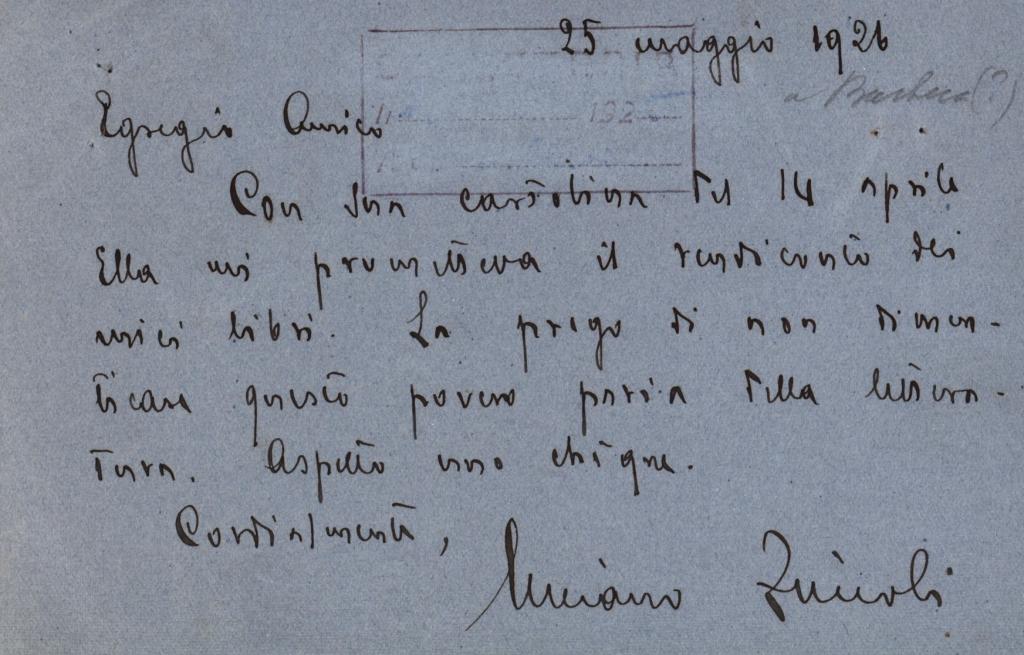 25 maggio 1926
a Barbera (?)
Egregio Amico
192
Con sua cartolina del 14 aprile
Ella mi prometteva il rendiconto dei
miei libri. La prego di non dimen-
ticare questo povero paria della lettera-
tura. Aspetto uno chèque.
Cordialmente,
Luciano Zùccoli